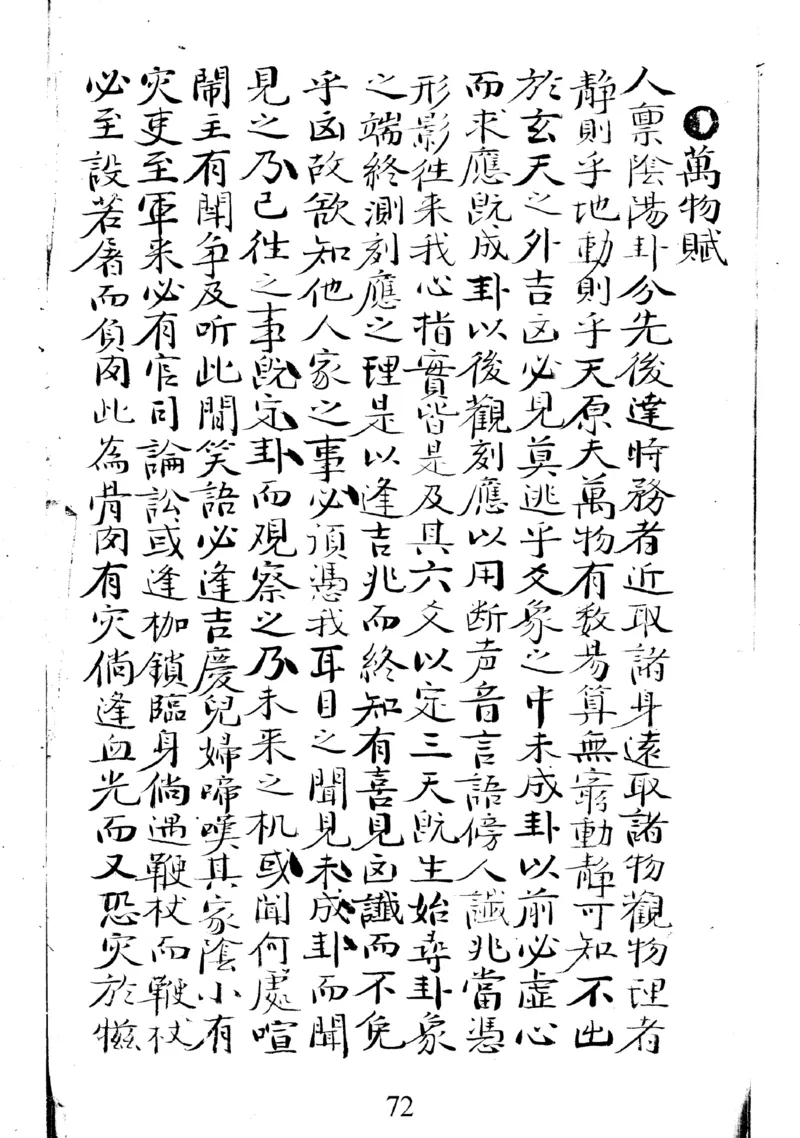 萬物賦
人禀陰陽卦分先後達時務者近取諸身遠取諸物觀物理者
靜則乎地動則乎天原夫萬物有数易算無窮動靜可知不出
於玄天之外吉凶必見莫逃乎爻象之中未成卦以前必虛心
而求應既成卦以後觀刻應以用断声音言語傍人讖兆當憑
形影徃来我心指實皆是及其六爻以定三天既生始尋卦象
之端終測刻應之理是以逢吉兆而終知有喜見凶讖而不免
乎凶故欲知他人家之事必須憑我耳目之聞見未成卦而聞
見之乃已徃之事既定卦而观察之乃未来之机或聞何處喧
鬧主有鬭争及听此間笑語必逢吉慶兒婦啼嘆其家陰小有
灾吏至軍来必有官司論訟或逢枷鎖臨身倘遇鞭杖而鞭杖
必至設若屠而負肉此為骨肉有灾倘逢血光而又恐灾於